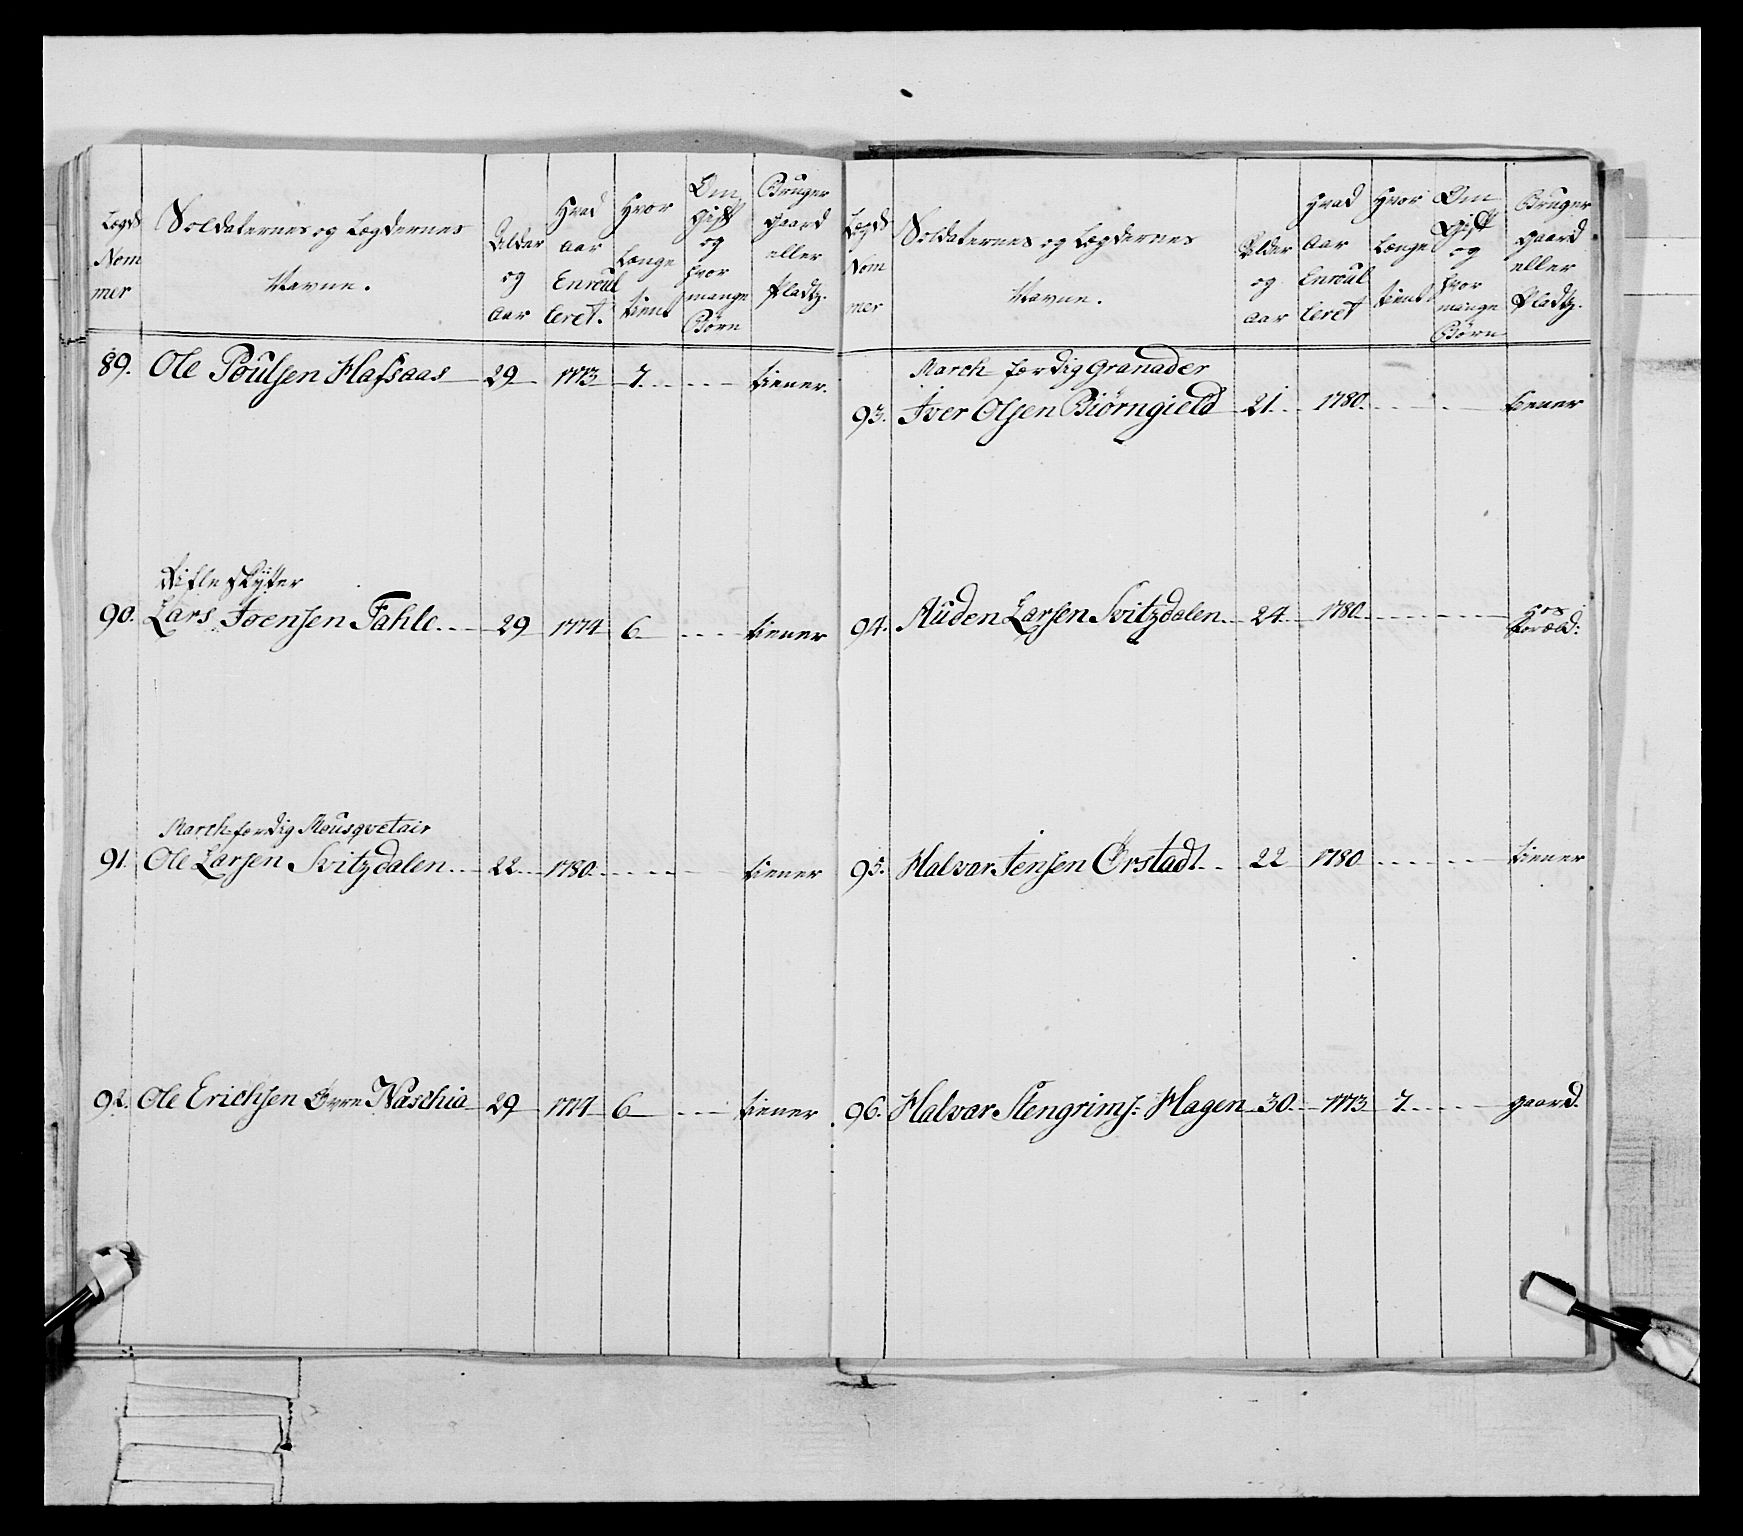 Legds Nom mer | Soldaternes og Legdernes Navne. | Alder og aar | Hvad aar Enroul leret. | Hvor Længe tient | Om gift og hvor mange Børn | Bruger gaard eller Pladtz.
89. Ole Poulsen Hafsaas 29 1773 7 tiener.
Rifle Skÿtter
90. Lars Joensen Fahle 29 1774 6 tiener
March færdig Mousqvetair
91. Ole Larsen Svitzdalen 22 1780 tiener
92. Ole Erichsen Øvre Næschia 29 1774 6 tiener
Legds Nom mer | Soldaternes og Legdernes Navne. | Alder og aar | Hvad aar Enroul leret | Hvor Længe tient | Om Gift og hvor mange Børn | Bruger gaard eller Pladtz.
March færdig Granader
93. Iver Olsen Biørngield 21 1780 tiener
94. Auden Larsen Svitzdalen 24 1780 hos foræld:
95. Halvar Jensen Ørstadt 22 1780 tiener
96. Halvar Stengrims: Hagen 30 1773 7 gaard.